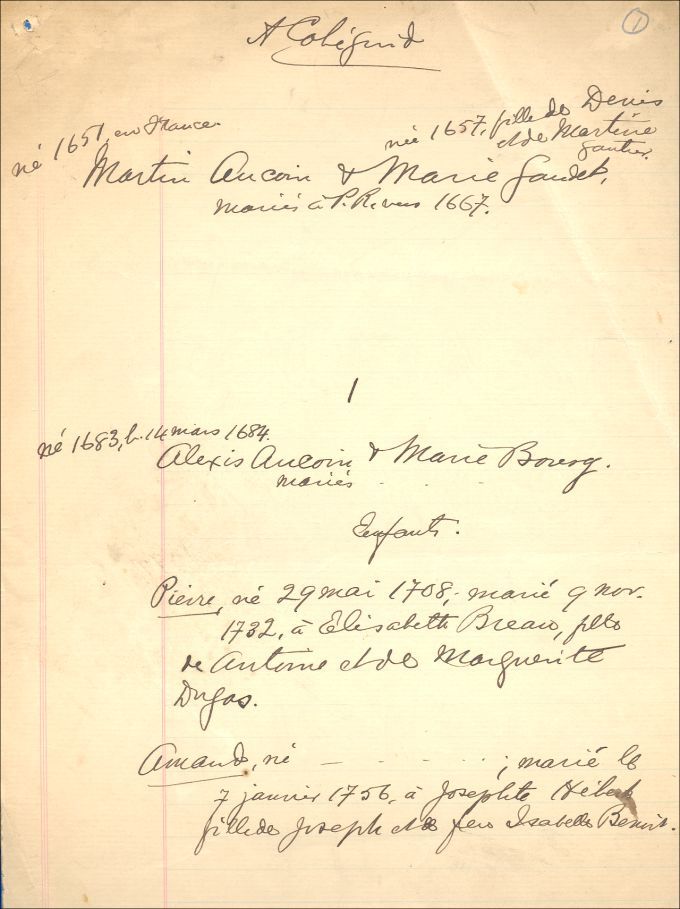 A Cobéguid
1
né 1651, en France.
née 1657, fille de Denis
et de Martine
Gautier.
Martin Aucoin & Marie Gaudet,
mariés à P. R. vers 1667.
1
né 1683, b. 14 mars 1684.
Alexis Aucoin & Marie Bourg.
mariés . . .
Enfants.
Pierre, né 29 mai 1708; marié 9 nov.
1732, à Elisabeth Breau, fille
de Antoine et de Marguerite
Dugas.
Amand, né - - - - ; marié le
7 janvier 1756, à Josephte Hébert
fille de Joseph et de feu Isabelle Benoit.